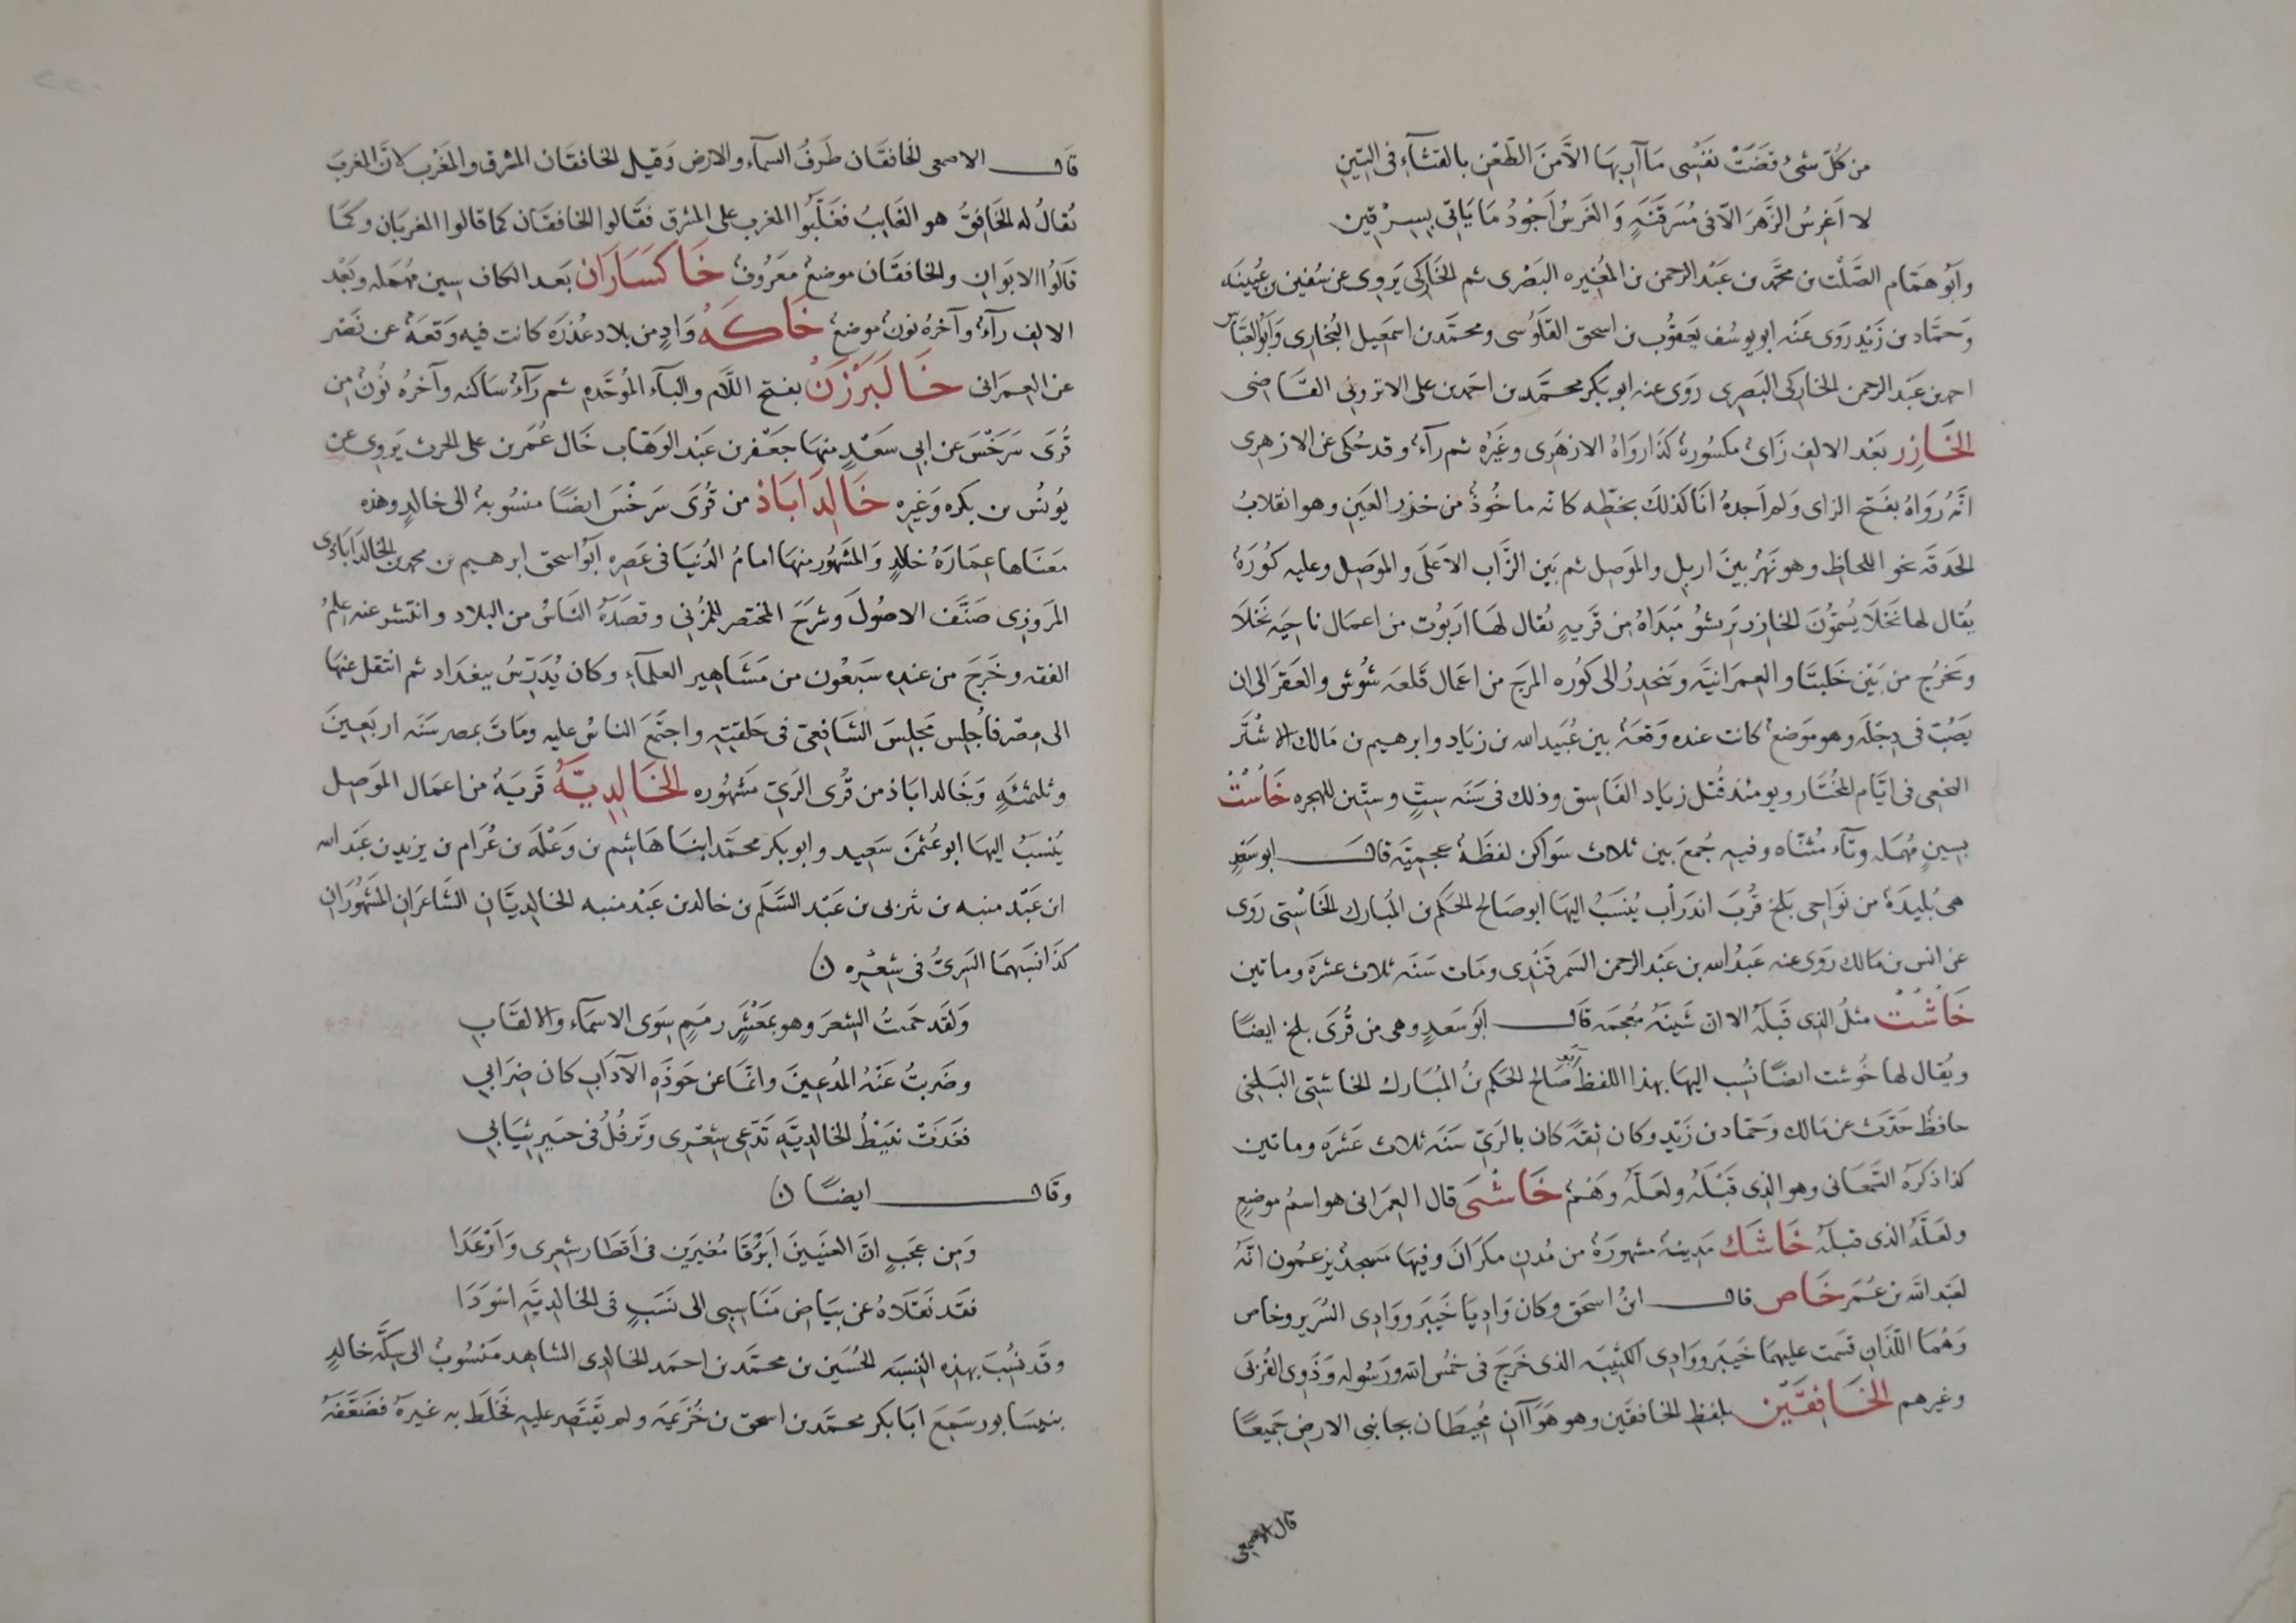 من كل شئ قضت نفسى مآربها الا من الطعن بالقثاء فى التين
لا اغرس الزهر الا فى مسرقنة والغرس اجود ما ياتى بسرقين
وابو همام الصلت بن محمد بن عبد الرحمن بن المغيره البصرى ثم الخاركى يروى عن سفين بن عيينه
وحماد بن زيد روى عنه ابو يوسف يعقوب بن اسحق القلوسى ومحمد بن اسمعيل البخارى وابو العباس
احمد بن عبد الرحمن الخاركى البصرى روى عنه ابو بكر محمد بن احمد بن على الاترونى القاضى
الخازر بعد الالف زاى مكسورة كذا رواه الازهرى وغيره ثم رآء وقد حكى عن الازهرى
انه رواه بفتح الزاى ولم اجده انا كذلك بخطه كانه ماخوذ من خزر العين وهو انقلاب
الحدقه نحو اللحاظ وهو نهر بين اربل والموصل ثم بين الزاب الاعلى والموصل وعليه كورة
يقال لها نخلا يسمون الخازر بريشو مبداه من قريه يقال لها اربوت من اعمال ناحيه نخلا
وتخرج من بين خلبتا والعمرانيه وينحدر الى كوره المرج من اعمال قلعه شوش والعقر الى ان
يصب فى دجله وهو موضع كانت عنده وقعة بين عبيد الله بن زياد وابرهيم بن مالك الاشتر
النخعى فى ايام المختار ويومئذ قتل زياد الفاسق وذلك فى سنه ست وستين للهجره خاست
بسين مهمله وتاء مثناه وفيه جمع بين ثلاث سواكن لفظة عجميه قال ابو سعد
هى بليدة من نواحى بلخ قرب اندراب ينسب اليها ابو صالح الحكم بن المبارك الخاستى روى
عن انس بن مالك روى عنه عبد الله بن عبد الرحمن السمرقندى ومات سنه ثلاث عشره وماتين
خاشت مثل الذى قبله الا ان شينه معجمه قال ابو سعد وهى من قرى بلخ ايضا
ويقال لها خوشت ايضا نسب اليها بهذا اللفظ صالح الحكم بن المبارك الخاشتى البلخى
حافظ حدث عن مالك وحماد بن زيد وكان ثقة كان بالرى سنه ثلاث عشره وماتين
كذا ذكره السمعانى وهو الذى قبله ولعله وهم خاشى قال العمرانى هو اسم موضع
ولعله الذى قبله خاشك مدينة مشهورة من مدن مكران وفيها مسجد يزعمون انه
لعبد الله بن عمر خاص قال ابن اسحق وكان واديا خيبر ووادى السرير وخاص
وهما اللذان قسمت عليهما خيبر ووادى الكتيبه الذى خرج فى خمس الله ورسوله وذوى القربى
وغيرهم الخافقين بلفظ الخافقين وهو هواآن محيطان بجانبى الارض جميعا
قال الاصمعى
قال الاصمعى الخافقان طرف السماء والارض وقيل الخافقان المشرق والمغرب لان المغرب
يقال له الخافق هو الغايب فغلبوا المغرب على المشرق فقالوا الخافقان كما قالوا المغربان وكما
قالوا الابوان والخافقان موضع معروف خاكساران بعد الكاف سين مهمله وبعد
الالف رآء وآخره نون موضع خاكه واد من بلاد عذره كانت فيه وقعة عن نصر
عن العمرانى خالبرزن بفتح اللام والباء الموحده ثم رآء ساكنه وآخره نون من
قرى سرخس عن ابى سعد منها جعفر بن عبد الوهاب خال عمر بن على الحرث يروى عن
يونس بن بكره وغيره خالداباذ من قرى سرخس ايضا منسوبة الى خالد وهذه
معناها عمارة خالد والمشهور منها امام الدنيا فى عصره ابو اسحق ابرهيم بن محمد الخالداباذى
المروزى صنف الاصول وشرح المختصر للمزنى وقصده الناس من البلاد وانتشر عنه علم
الفقه وخرج من عنده سبعون من مشاهير العلماء وكان يدرس ببغداد ثم انتقل عنها
الى مصر فاجلس مجلس الشافعى فى حلقته واجتمع الناس عليه ومات بمصر سنه اربعين
وثلثمئه وخالداباذ من قرى الرى مشهوره الخالدية قرية من اعمال الموصل
ينسب اليها ابو عثمن سعيد وابو بكر محمد ابنا هاشم بن وعلة بن عرام بن يزيد بن عبد الله
ابن عبد منبه بن يثربى بن عبد السلم بن خالد بن عبد منبه الخالديان الشاعران المشهوران
كذا نسبهما السرى فى شعره ن
ولقد حميت الشعر وهو بمعشر رمم سوى الاسماء والالقاب
وضربت عنه المدعين وانما عن حوذه الآداب كان ضرابى
فغدت نبيط الخالديه تدعى شعرى وترفل فى حبير ثيابى
وقال ايضا ن
ومن عجب ان الغبيين ابرقا مغيرين فى اقطار شعرى وارعدا
فقد نقلاه عن بياض مناسبى الى نسب فى الخالديه اسودا
وقد نسب بهذه النسبه الحسين بن محمد بن احمد الخالدى الشاهد منسوب الى سكة خالد
بنيسابور سمع ابا بكر محمد بن اسحق بن خزيمه ولم يقتصر عليه فخلط به غيره فضعفه